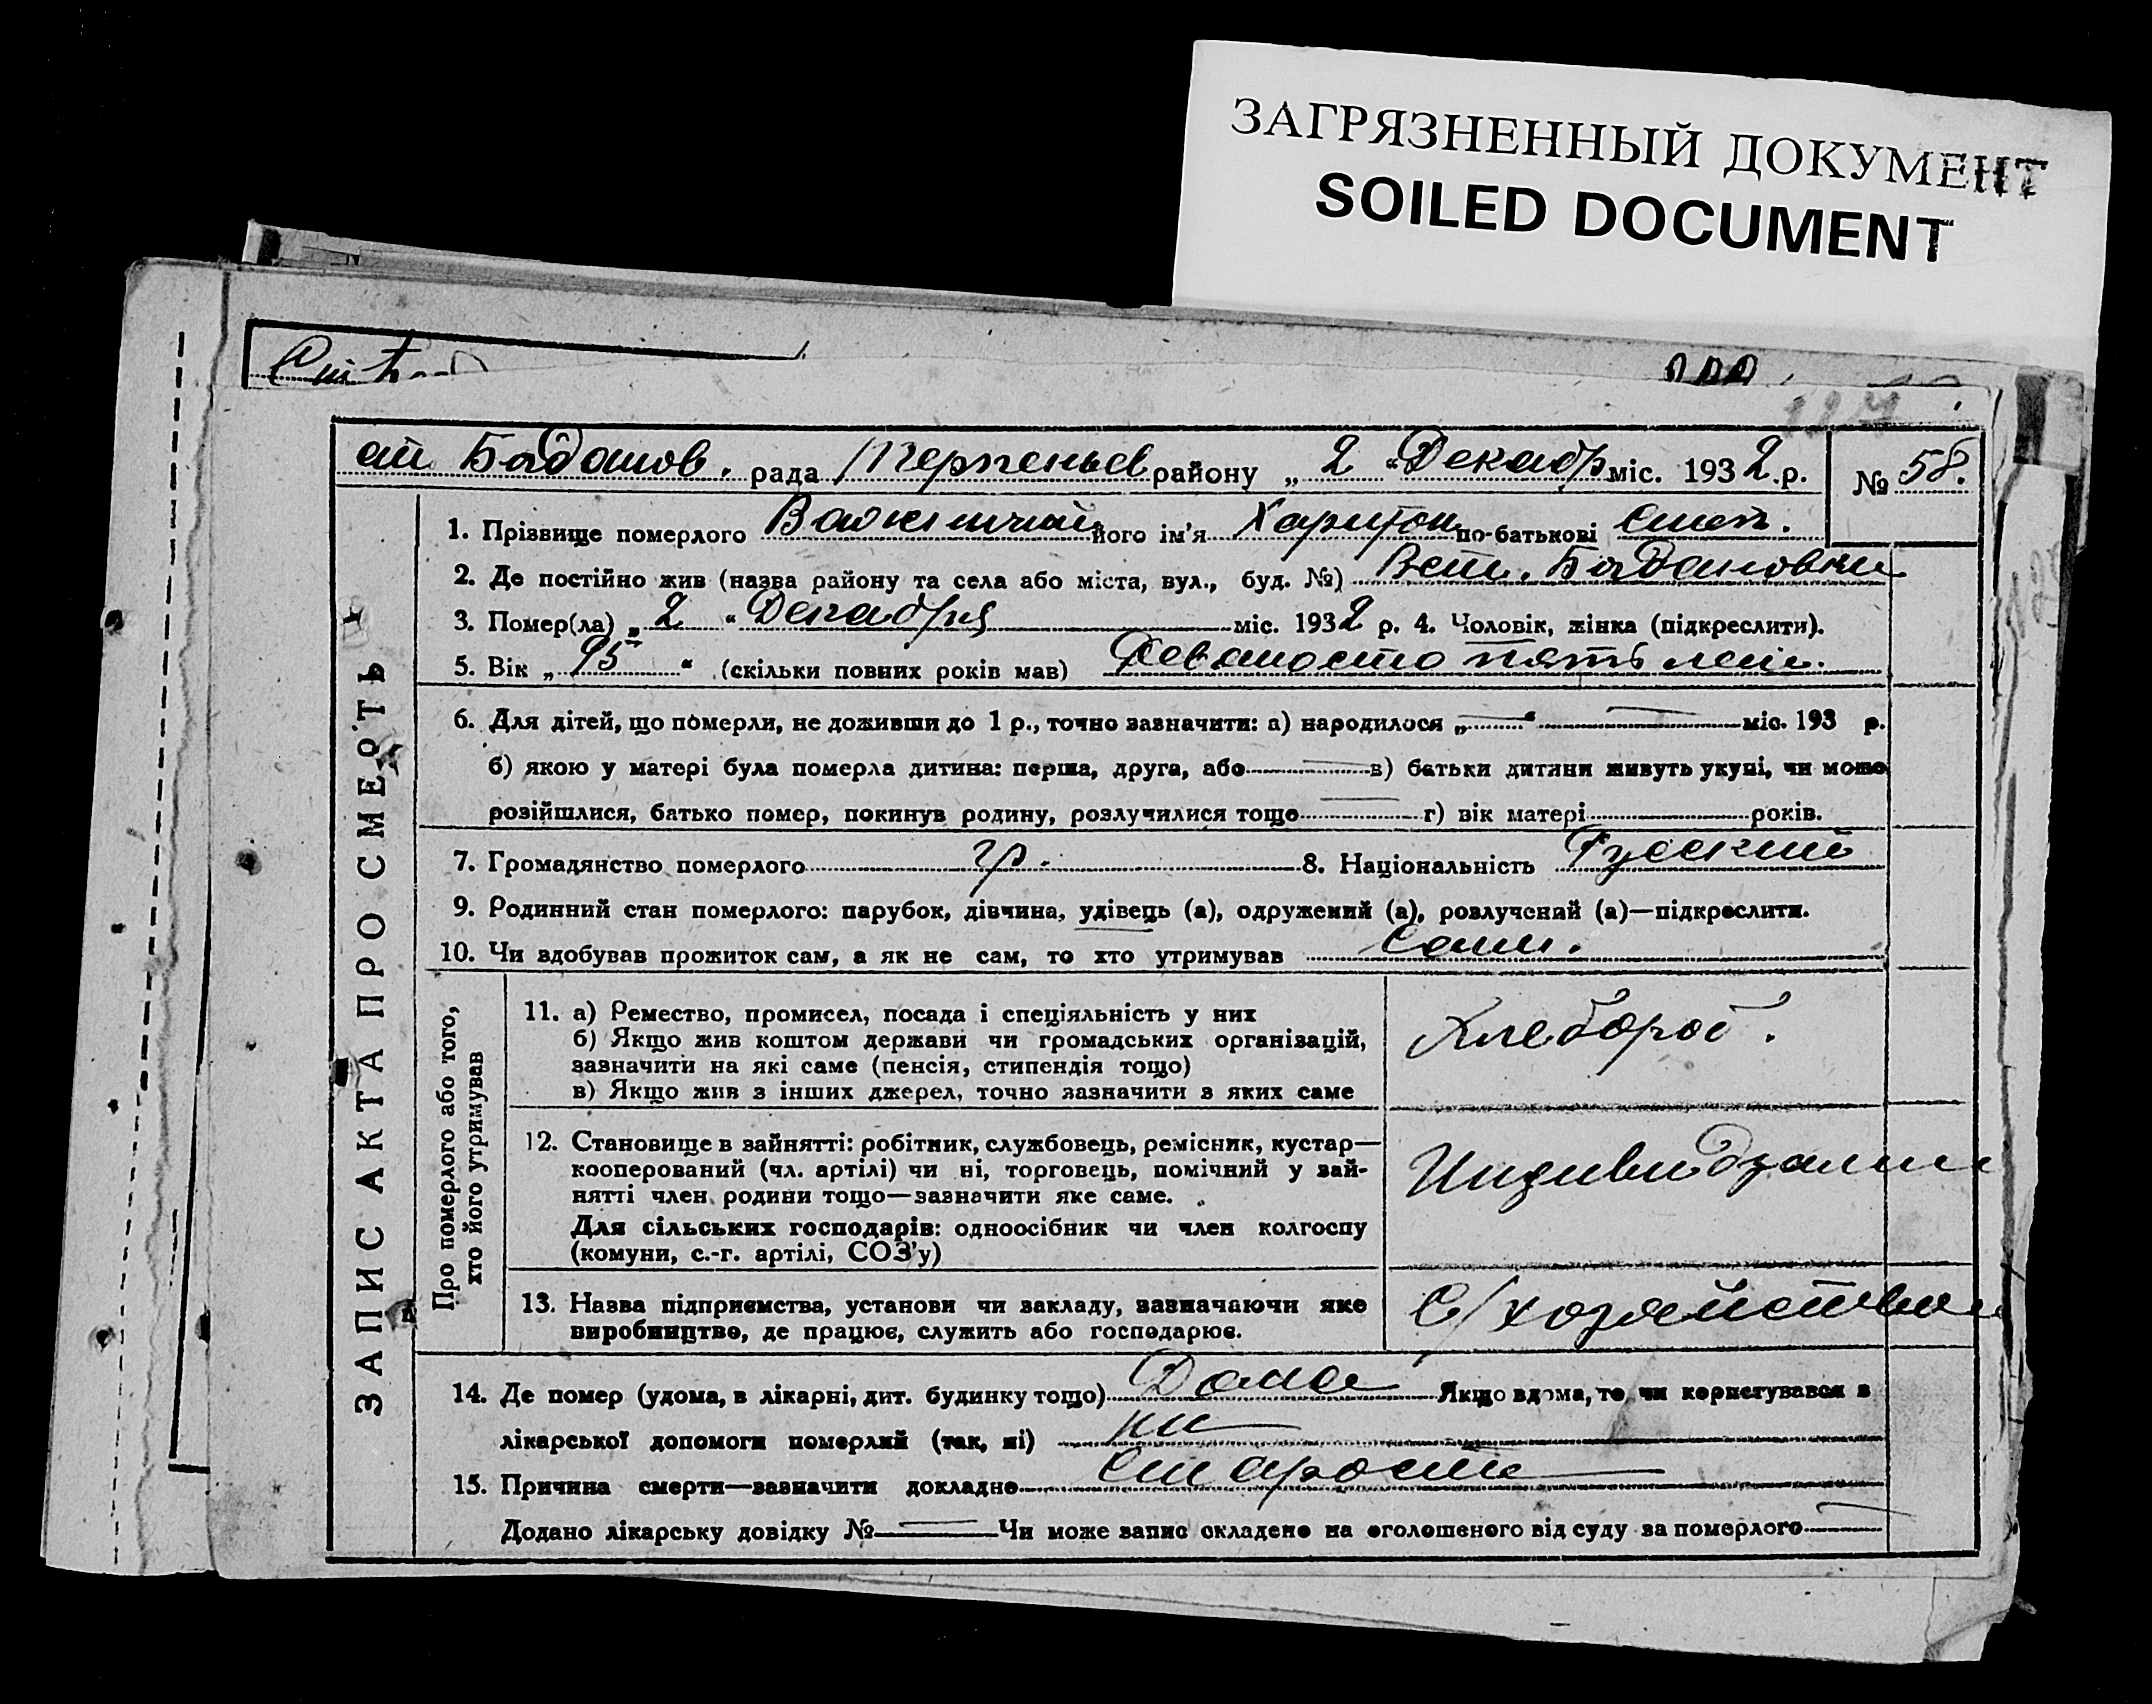 ЗАГРЯЗНЕННЫЙ ДОКУМЕНТ
SOILED DOCUMENT
Богданов. рада Терпеньев району „ 2 “ Декабр міс. 1932 р. № 58.
ЗАПИС АКТА ПРО СМЕРТЬ
1. Прізвище померлого його ім'я Харитон по-батькові
2. Де постійно жив (назва району та села або міста, вул., буд. №) Богдановки
3. Помер(ла) „ 2 “ Декабря міс. 1932 р. 4. Чоловік, жінка (підкреслити).
5. Вік „ 95 “ (скільки повних років мав) Девяносто пять лет.
6. Для дітей, що померли, не доживши до 1 р., точно зазначити: а) народилося „ — “ — міс. 193 р.
б) якою у матері була померла дитина: перша, друга, або — в) батьки дитини живуть укупі, чи може
розійшлися, батько помер, покинув родину, розлучилися тощо — г) вік матері років.
7. Громадянство померлого гр. 8. Національність Русский
9. Родинний стан померлого: парубок, дівчина, удівець (а), одружений (а), розлучений (а)—підкреслити.
10. Чи здобував прожиток сам, а як не сам, то хто утримував Сам.
Про померлого або того,
хто його утримував
11. а) Ремество, промисел, посада і спеціяльність у них
б) Якщо жив коштом держави чи громадських організацій,
зазначити на які саме (пенсія, стипендія тощо)
в) Якщо жив з інших джерел, точно зазначити з яких саме
Хлебороб.
12. Становище в зайнятті: робітник, службовець, ремісник, кустар—
кооперований (чл. артілі) чи ні, торговець, помічний у зай-
нятті член родини тощо—зазначити яке саме.
Для сільських господарів: одноосібник чи член колгоспу
(комуни, с.-г. артілі, СОЗ'у)
13. Назва підприємства, установи чи закладу, зазначаючи яке
виробництво, де працює, служить або господарює.
С/хозяйство
14. Де помер (удома, в лікарні, дит. будинку тощо) Дома Якщо вдома, то чи користувався в
лікарської допомоги померлий (так, ні) ни
15. Причина смерти—зазначити докладно Старость
Додано лікарську довідку № — Чи може запис складено на оголошеного від суду за померлого —